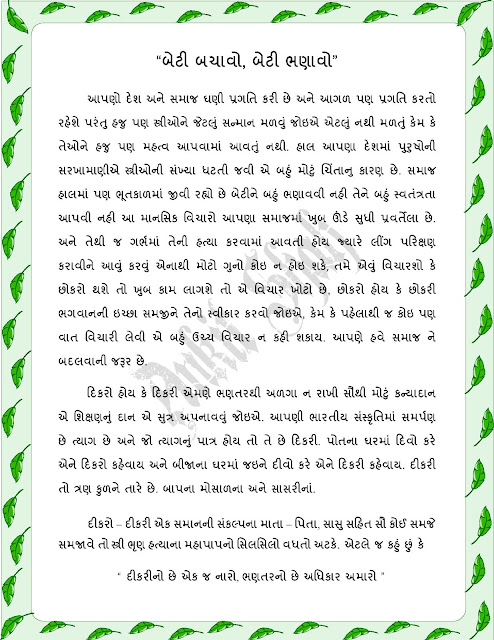 “બેટી બચાવો, બેટી ભણાવો”
આપણો દેશ અને સમાજ ઘણી પ્રગતિ કરી છે અને આગળ પણ પ્રગતિ કરતો
રહેશે પરંતુ હજુ પણ સ્ત્રીઓને જેટલું સન્માન મળવું જોઇએ એટલું નથી મળતું કેમ કે
તેઓને હજુ પણ મહત્વ આપવામાં આવતું નથી. હાલ આપણા દેશમાં પુરુષોની
સરખામાણીએ સ્ત્રીઓની સંખ્યા ઘટતી જવી એ બહું મોટું ચિંતાનુ કારણ છે. સમાજ
હાલમાં પણ ભૂતકાળમાં જીવી રહ્યો છે બેટીને બહું ભણાવવી નહી તેને બહું સ્વતંત્રતા
આપવી નહી આ માનસિક વિચારો આપણા સમાજમાં ખુબ ઊંડે સુધી પ્રવર્તેલા છે.
અને તેથી જ ગર્ભમાં તેની હત્યા કરવામાં આવતી હોય જ્યારે લીંગ પરિક્ષણ
કરાવીને આવું કરવું એનાથી મોટો ગુનો કોઇ ન હોઇ શકે, તમે એવું વિચારશો કે
છોકરો થશે તો ખુબ કામ લાગશે તો એ વિચાર ખોટો છે. છોકરો હોય કે છોકરી
ભગવાનની ઇચ્છા સમજીને તેનો સ્વીકાર કરવો જોઇએ, કેમ કે પહેલાથી જ કોઇ પણ
વાત વિચારી લેવી એ બહું ઉચ્ચ વિચાર ન કહી શકાય. આપણે હવે સમાજ ને
બદલવાની જરૂર છે.
દિકરો હોય કે દિકરી એમણે ભણતરથી અળગા ન રાખી સૌથી મોટું કન્યાદાન
એ શિક્ષણનું દાન એ સુત્ર અપનાવવું જોઇએ. આપણી ભારતીય સંસ્કૃતિમાં સમર્પણ
છે ત્યાગ છે અને જો ત્યાગનું પાત્ર હોય તો તે છે દિકરી. પોતના ઘરમાં દિવો કરે
એને દિકરો કહેવાય અને બીજાના ઘરમાં જઇને દીવો કરે એને દિકરી કહેવાય. દીકરી
તો ત્રણ કુળને તારે છે. બાપના મોસાળના અને સાસરીનાં.
દીકરો – દીકરી એક સમાનની સંકલ્પના માતા – પિતા, સાસુ સહિત સૌ કોઈ સમજે
સમજાવે તો સ્ત્રી ભૃણ હત્યાના મહાપાપનો સિલસિલો વધતો અટકે. એટલે જ કહું છું કે
“ દીકરીનો છે એક જ નારો, ભણતરનો છે અધિકાર અમારો ”